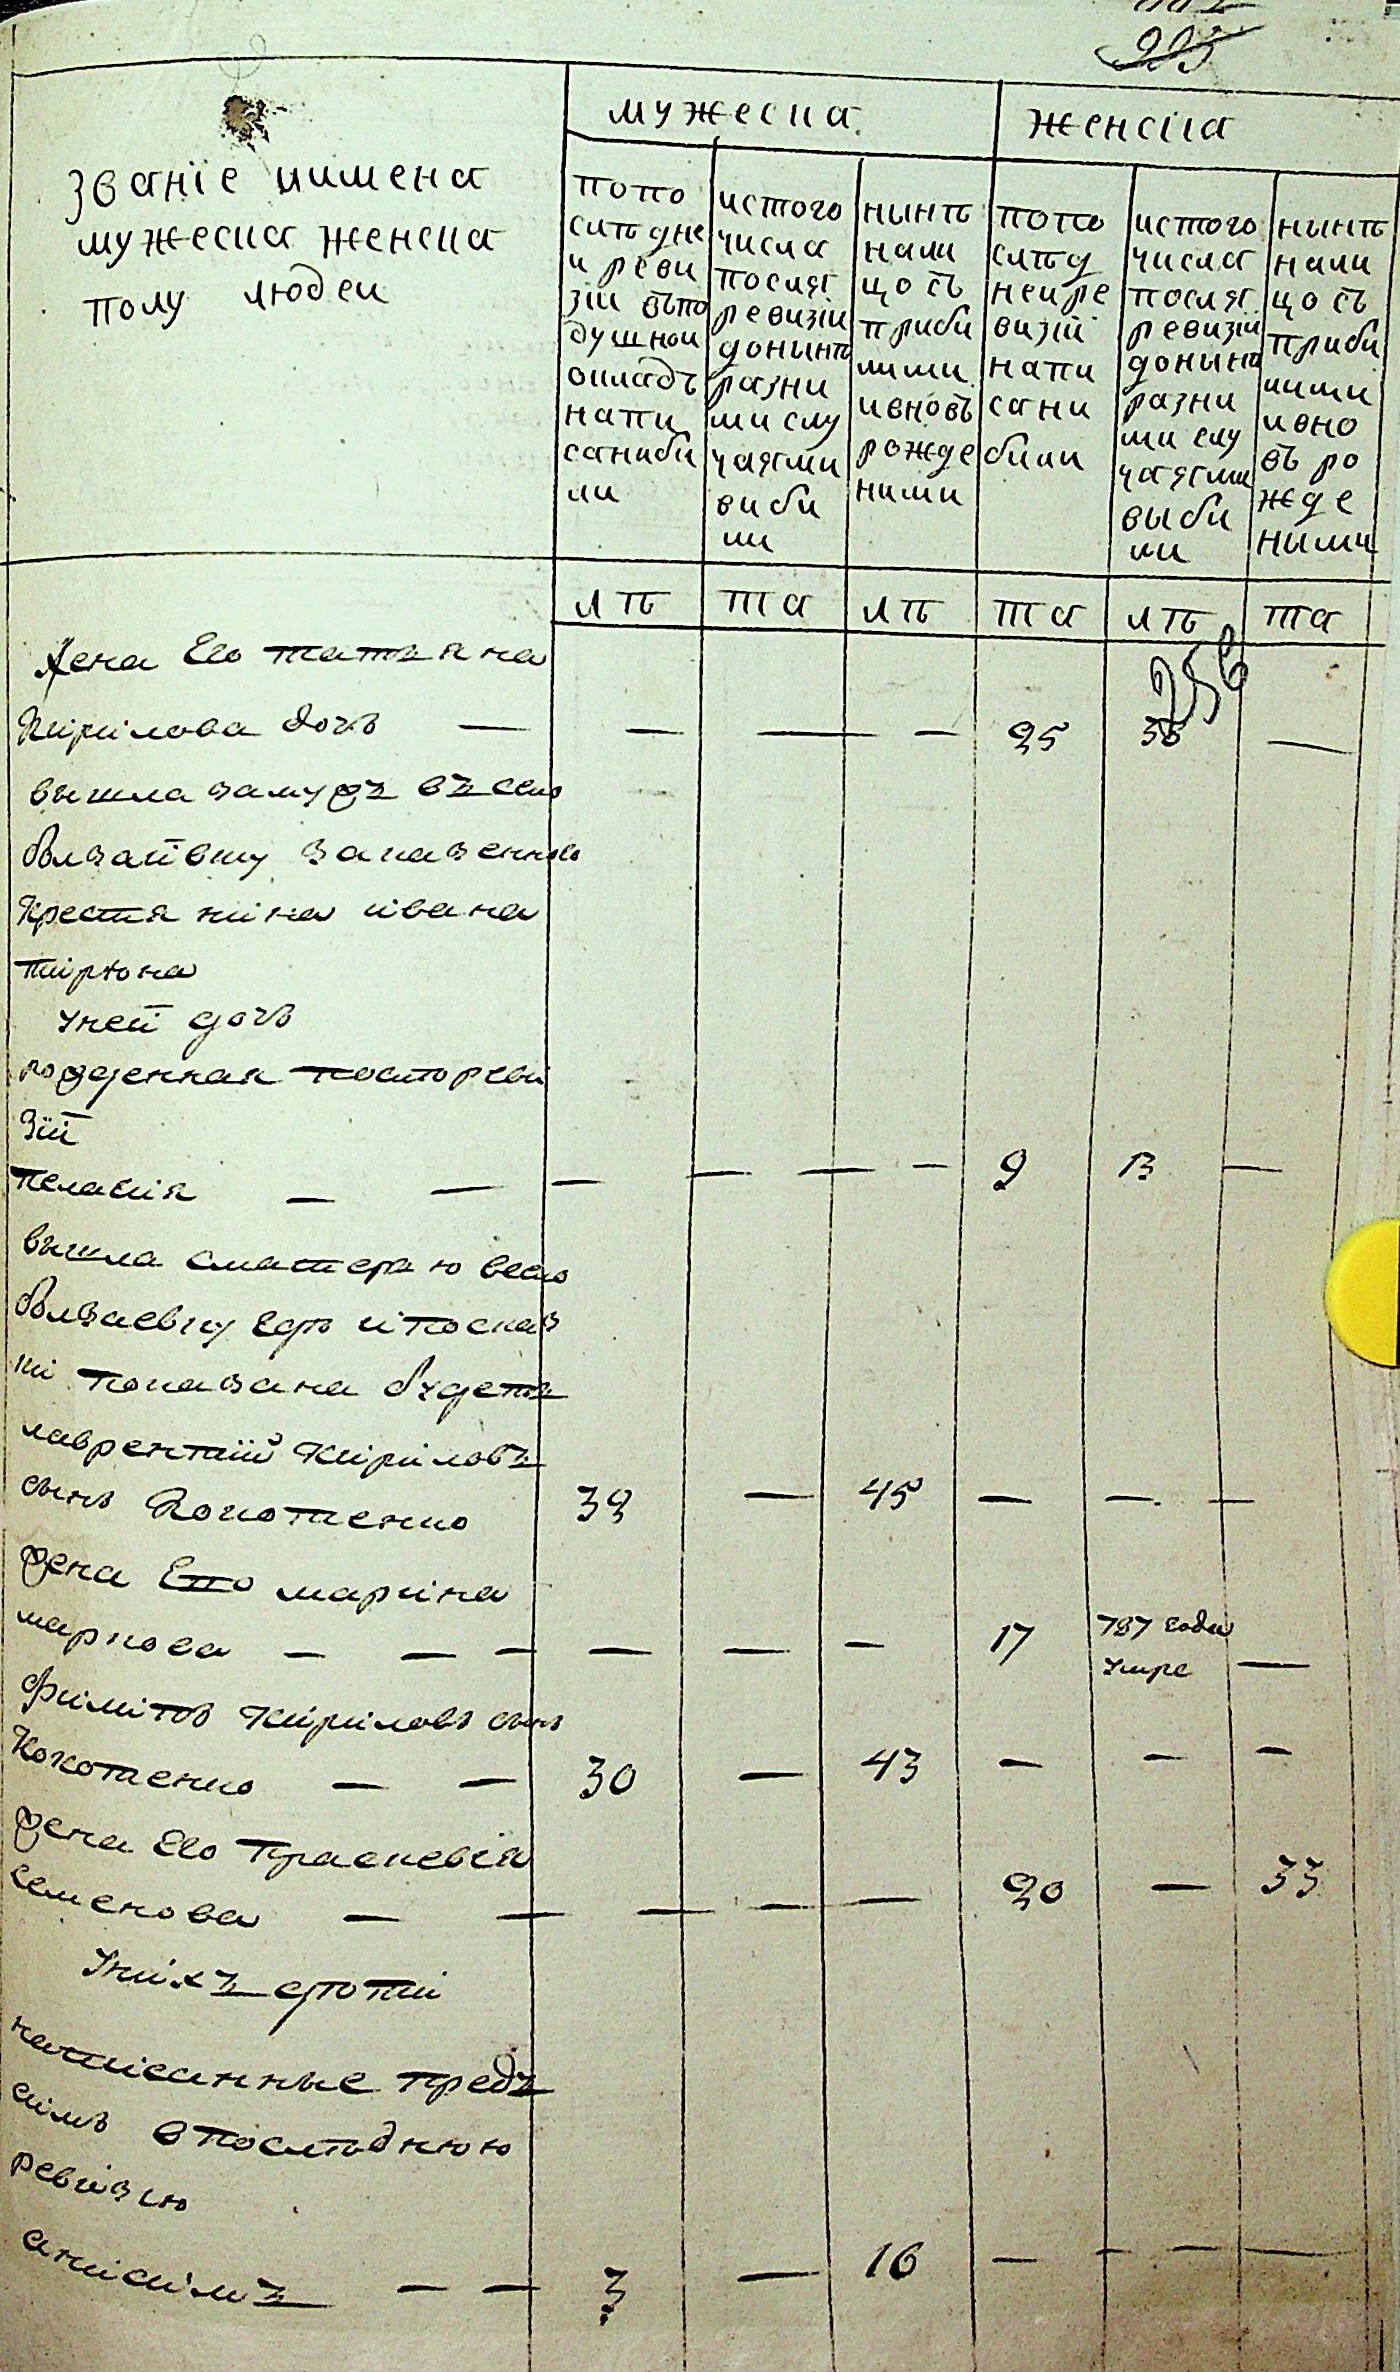 223
мужеска
женска
званіе иимена
мужеска женска
полу людеи
попо
слѣдне
и реви
зіи въпо
душнои
окладъ
напи
санибы
ли
истого
числа
послѣ
ревизіи
донынѣ
разни
ми слу
чаями
виби
ли
нынѣ
нали
цо съ
приби
лими
ивновъ
рожде
ними
попо
слѣд
неире
визіи
напи
сани
били
истого
числа
послѣ
ревизіи
донынѣ
разни
ми слу
чаями
выби
ли
нынѣ
нали
цо съ
приби
лими
ивно
въ ро
жде
ными
лѣ та лѣ та лѣ та
256
жена Его татъяна
Кирилова дочъ — — — — 25 38 —
вышла замужъ въ село
болзаївку заказенного
Крестянина івана
тирюна
унеї дочъ
рожденная послѣреви
зїї
пелагія — — — — — — 2 13 —
вышла сматерью всело
болзаевку Гдѣ ипосказ
ки показана будетъ
лаврентиї Кириловъ
сынъ Кокотенко 32 — 45 — — —
жена Его марина
маркова — — — — — — 17 787 года
умре —
филипъ Кириловъ сынъ
Кокотенко — — 30 — 43 — — —
жена Его Прасковія
семенова — — — — — 20 — 33
Унихъ дѣти
написанные предъ
симъ впослѣднюю
ревизію
анисимъ — — 3 — 16 — — — —